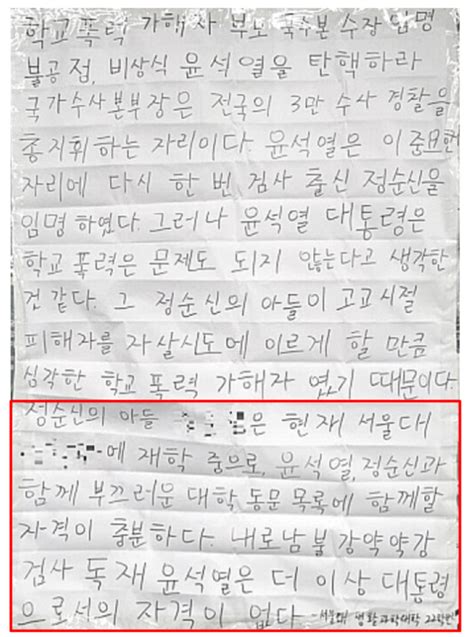 학교폭력 가해자 부모 국수본 수장 임명
불공정, 비상식 윤석열을 탄핵하라
국가수사본부장은 전국의 3만 수사 경찰을
총지휘하는 자리이다. 윤석열은 이 중요한
자리에 다시 한 번 검사 출신 정순신을
임명 하였다. 그러나 윤석열 대통령은
학교 폭력은 문제도 되지 않는다고 생각한
것 같다. 그 정순신의 아들이 고교시절
피해자를 자살시도에 이르게 할 만큼
심각한 학교 폭력 가해자 였기 때문이다.
정순신의 아들 은 현재 서울대
에 재학 중으로, 윤석열, 정순신과
함께 부끄러운 대학 동문 목록에 함께할
자격이 충분하다. 내로남불 강약약강
검사 독재 윤석열은 더 이상 대통령
으로서의 자격이 없다 -서울대 생활과학대학 22학번-